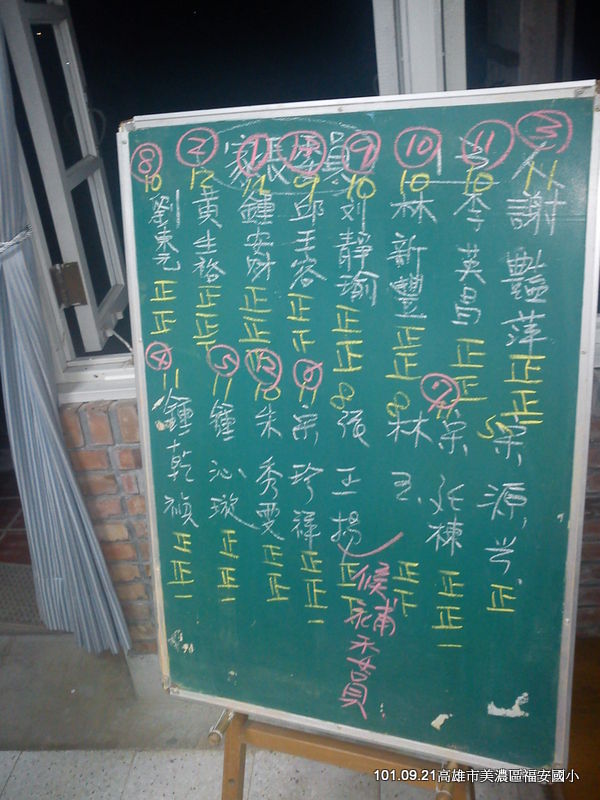 家長委員
③ 11 謝豔萍 正正一
⑪ 10 李英昌 正正
⑩ 10 林新豐 正正
⑨ 10 刘靜瑜 正正
邱玉容 正正
① 鍾安財 正正
② 12 黃生裕 正正
⑧ 10 劉東元 正正
5 宋源 正
11 宋 棟 正正一
8 林玉 正
8 張正揚 正
11 宋珍祥 正正一
⑫ 10 朱秀雯 正正
⑤ 11 鍾沁璇 正正一
④ 11 鍾乾禎 正正一
候補委員
101.09.21高雄市美濃區福安國小